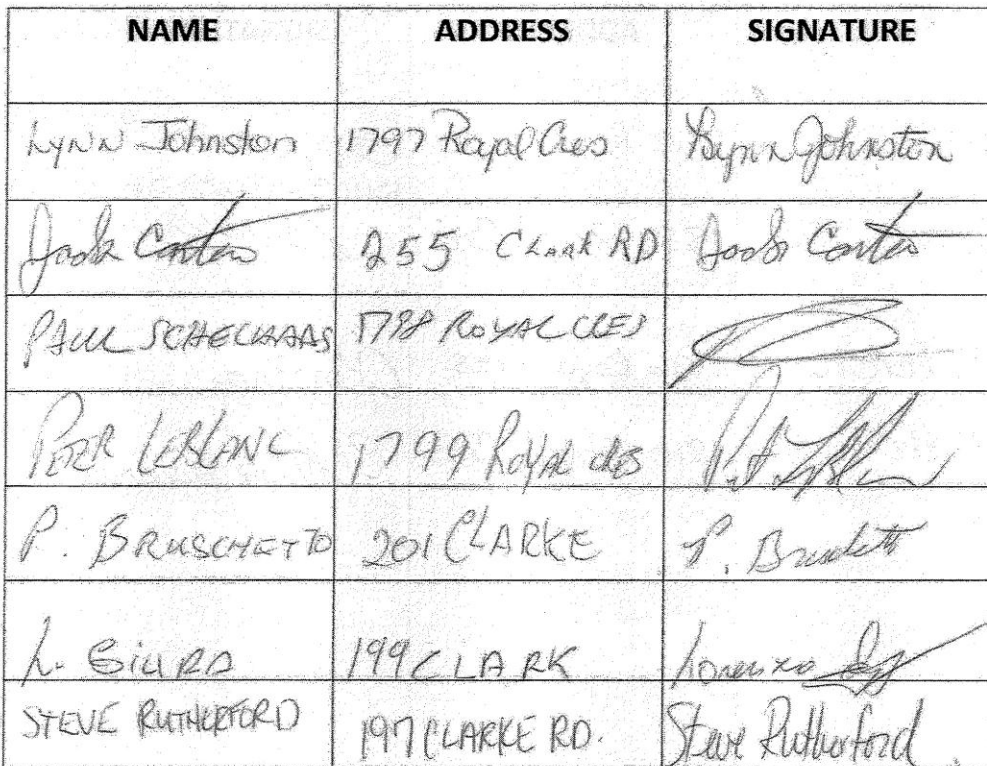 NAME ADDRESS SIGNATURE
Lynn Johnston 1797 Royal Cres Lynn Johnston
Carter 255 Clark RD Carter
PAUL 1798 ROYAL CRES
PETER LEBLANC 1799 ROYAL cres
P. BRUSCHETTO 201 CLARKE P.
L. 199 CLARK Lorenzo
STEVE RUTHERFORD 197 CLARKE RD. Steve Rutherford